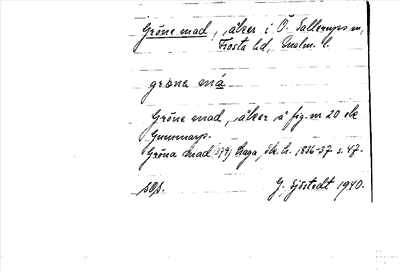 Gröne mad, åker i Ö. Sallerups sn,
Frosta hd, Malm. l.
gröna má
Gröne mad, åker å fig. nr 20 sk
Gummarp.
Gröna mad (579) Laga sk. h. 1836-37 s. 47.
sOp. G. Sjöstedt 1940.